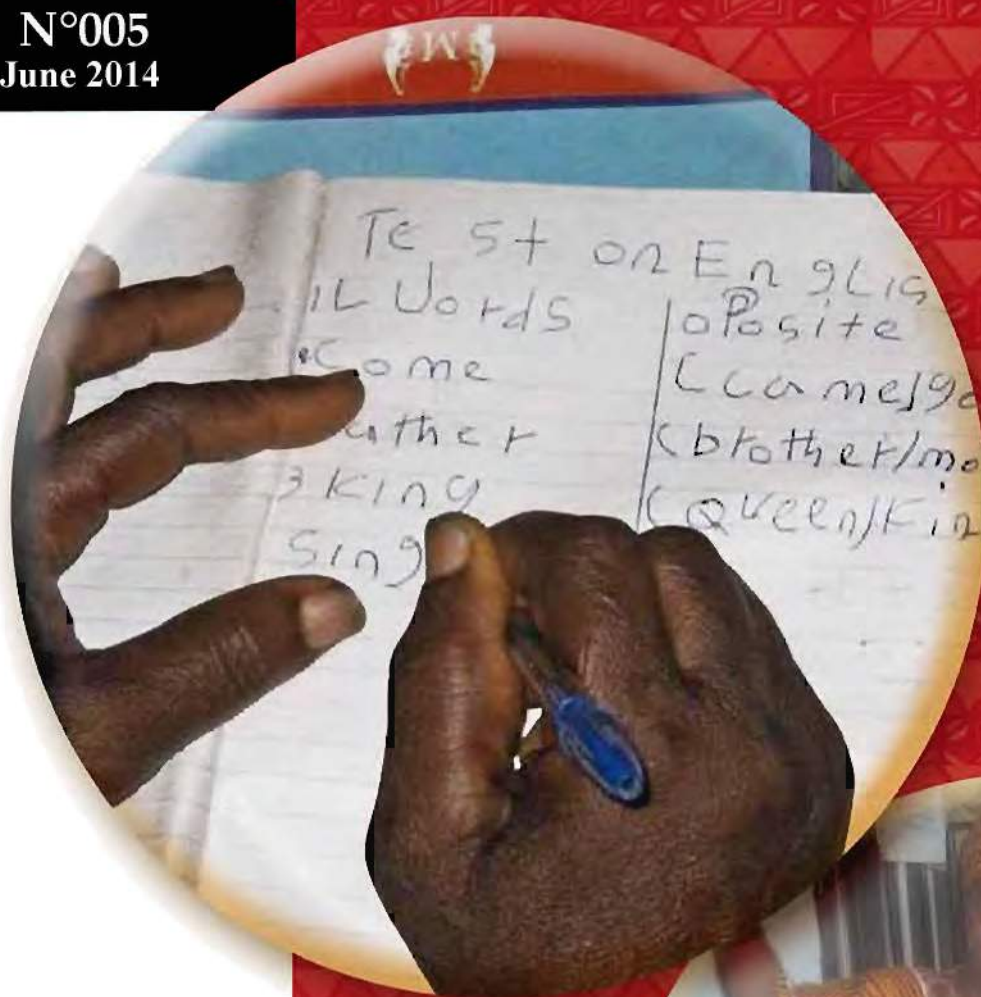 N°005
June 2014
Te st on EngLis
Words oPosite
Come (came/go
father (brother/mo
3 King (Queen/Kin
Sing